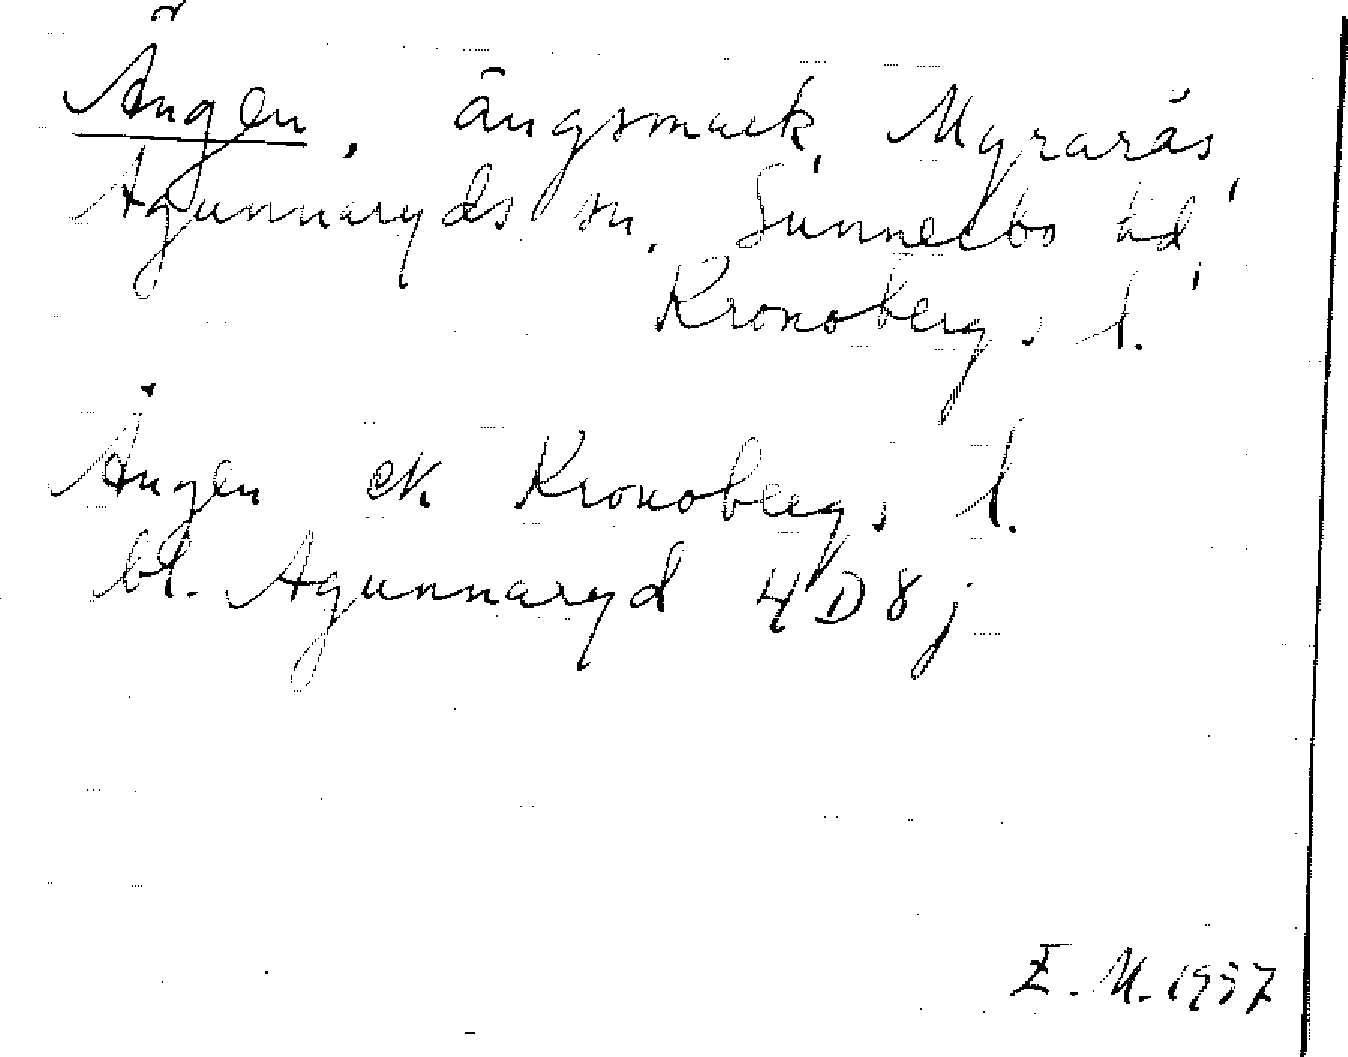 Ängen, ängsmark, Myrarås,
Agunnaryds sn, Sunnerbo hd,
Kronobergs l.
Ängen ek. Kronobergs l.
bl. Agunnaryd 4D8j
E.M. 1937